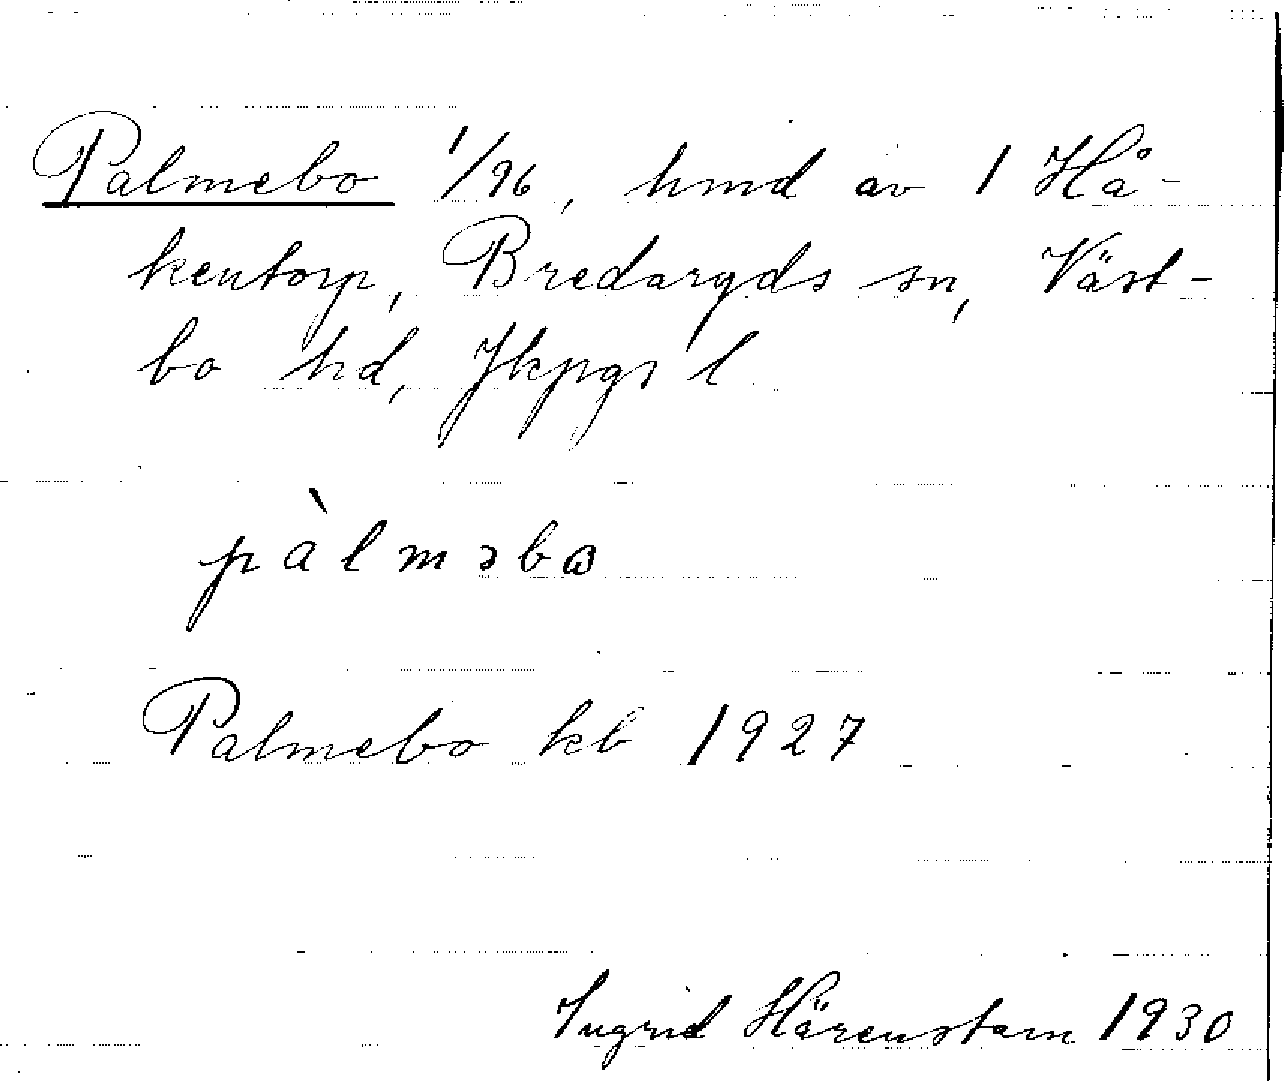 Palmebo 1/96, hmd av 1 Hå-
kentorp, Bredaryds sn, Väst-
bo hd, Jkpgs l
pàlməbɷ
Palmebo kb 1927
Ingrid Härenstam 1930